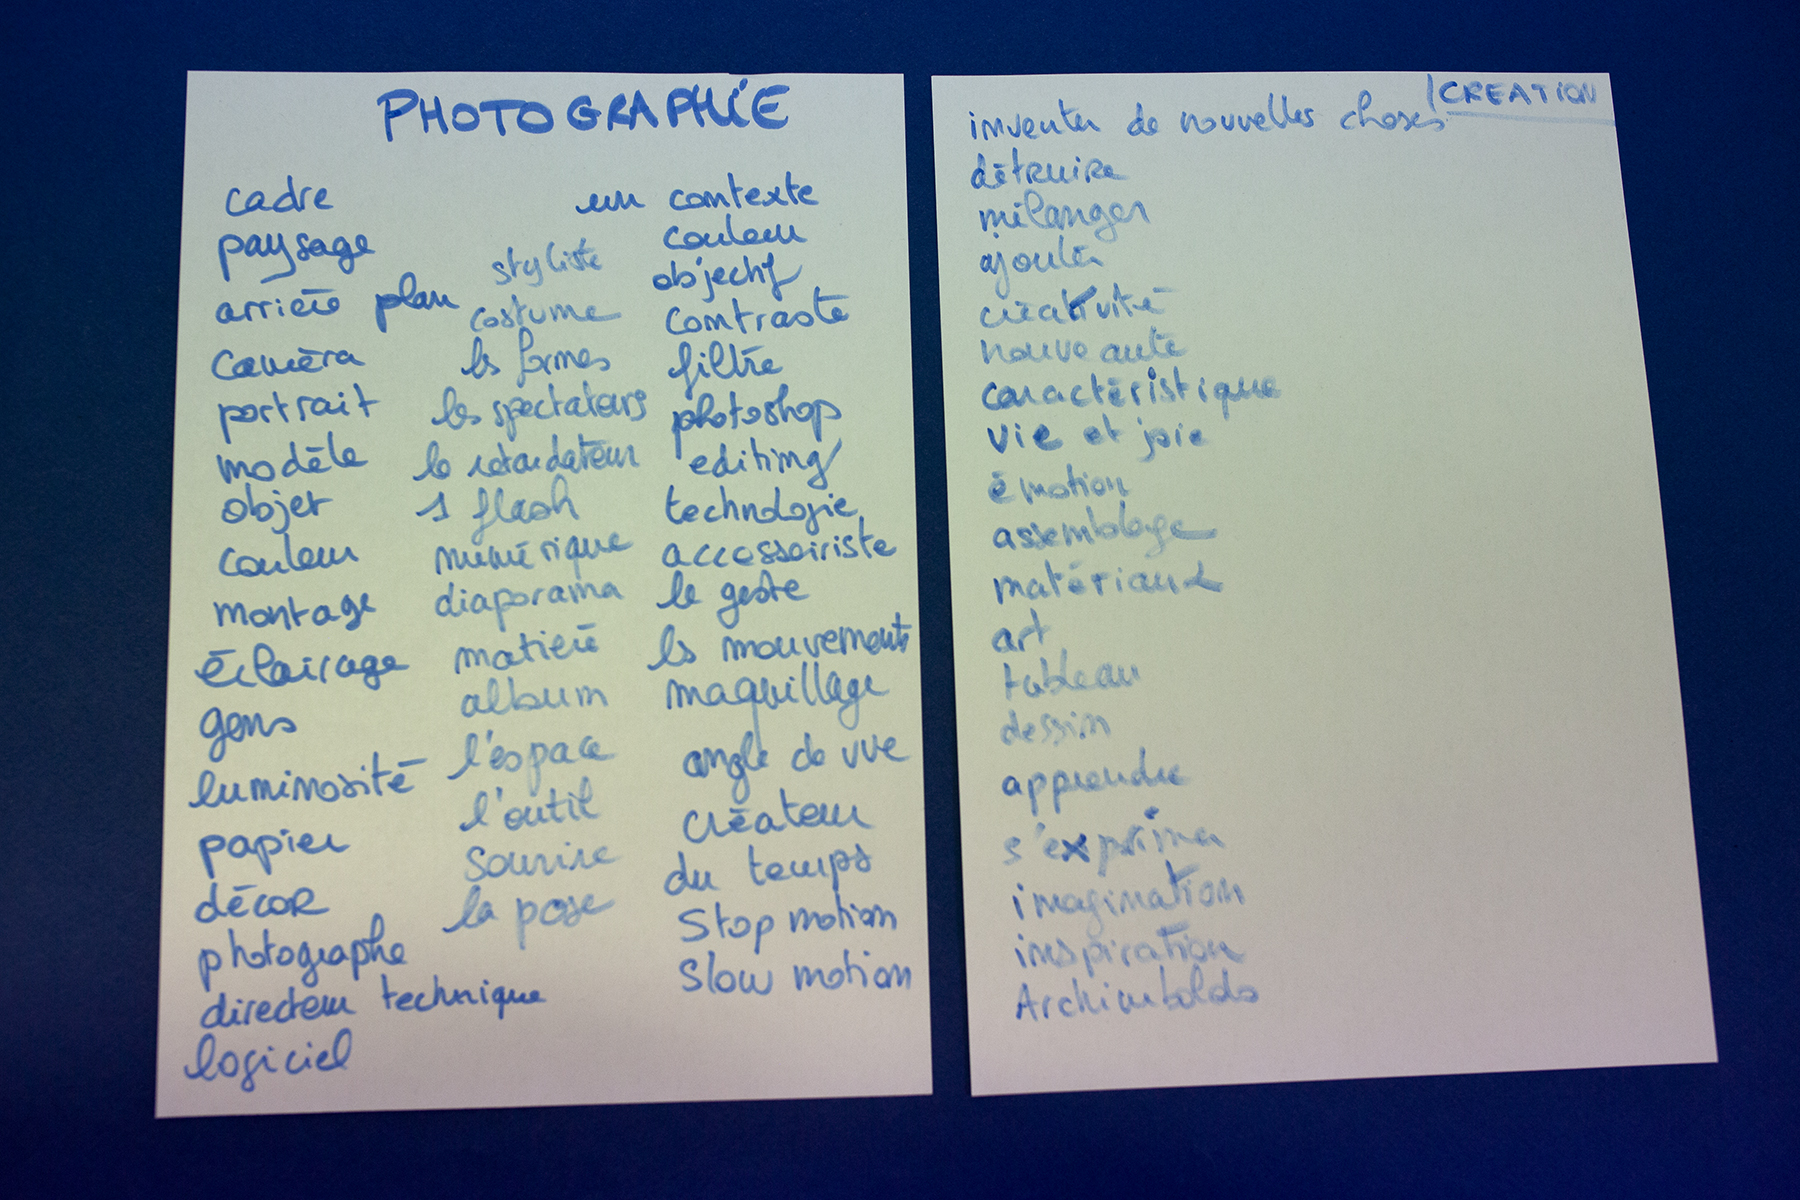 PHOTOGRAPHIE
cadre
paysage
arrière plan
caméra
portrait
modèle
objet
couleur
montage
éclairage
gens
luminosité
papier
décor
photographe
directeur technique
logiciel
styliste
costume
les formes
les spectateurs
le retardateur
1 flash
numérique
diaporama
matière
album
l'éspace
l'outil
sourire
la pose
un contexte
couleur
objectif
contraste
filtre
photoshop
editing
technologie
accessoiriste
le geste
les mouvements
maquillage
angle de vue
créateur
du temps
Stop motion
Slow motion
/CREATION
inventer de nouvelles choses
détruire
mélanger
ajouter
créativité
nouveauté
caractéristique
vie et joie
émotion
assemblage
matériaux
art
tableau
dessin
apprendre
s'exprimer
imagination
inspiration
Archimboldo